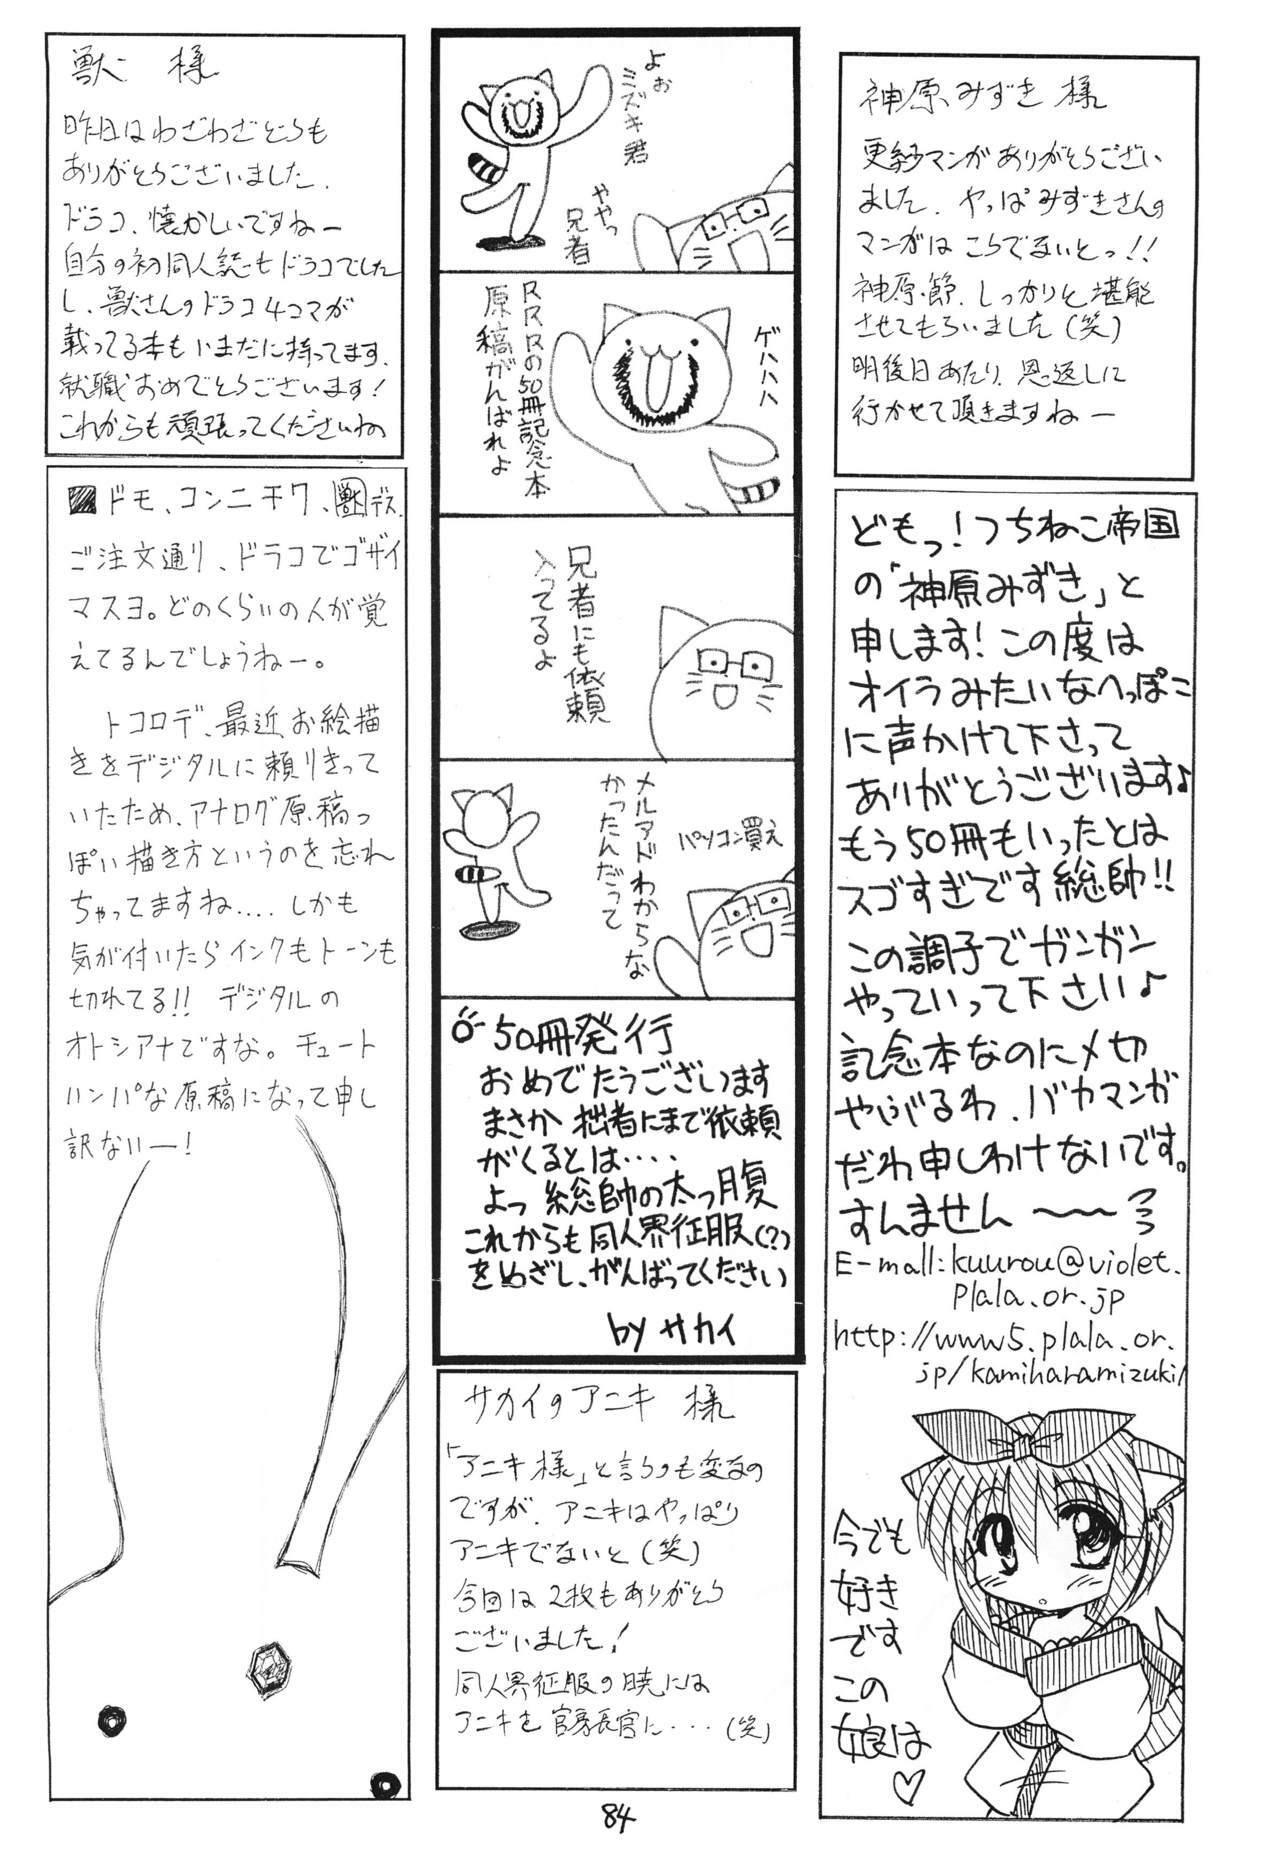 神原みずき 様
更紗マンガありがとうござい
ました. やっぱみずきさんの
マンガはこうでないとっ!!
神原節、しっかりと堪能
させてもらいました(笑)
明後日あたり、恩返しに
行かせて頂きますねー
どもっ!つちねこ帝国
の「神原みずき」と
申します!この度は
オイラみたいなへっぽこ
に声かけて下さって
ありがとうございます♪
もう50冊もいったとは
スゴすぎです総帥!!
この調子でガンガン
やっていって下さい♪
記念本なのに〆切
やぶるわ、バカマンガ
だわ申しわけないです。
すんません〜〜
E-mall:kuurou@violet.
plala.or.jp
http://www5.plala.or.
jp/kamiharamizuki/
今でも
好き
です
この
娘は
♡
よぉ
ミズキ君
ややっ
兄者
ゲハハハ
RRRの50冊記念本
原稿がんばれよ
兄者にも依頼
入ってるよ
パソコン買え
メルアドわからな
かったんだって
50冊発行
おめでたうございます
まさか拙者にまで依頼
がくるとは・・・・
よっ総帥の太っ腹
これからも同人界征服(?)
をめざし、がんばってください
by サカイ
サカイのアニキ 様
「アニキ様」と言うのも変なの
ですが、アニキはやっぱり
アニキでないと(笑)
今回は2枚もありがとう
ございました!
同人界征服の暁には
アニキを官房長官に・・・(笑)
獣 様
昨日はわざわざどうも
ありがとうございました.
ドラコ、懐かしいですねー
自分の初同人誌もドラコでした
し、獣さんのドラコ4コマが
載ってる本もいまだに持ってます.
就職おめでとうございます!
これからも頑張ってくださいね
ドモ、コンニチワ、獣デス.
ご注文通り、ドラコでゴザイ
マスヨ。どのくらいの人が覚
えてるんでしょうねー。
トコロデ、最近お絵描
きをデジタルに頼りきって
いたため、アナログ原稿っ
ぽい描き方というのを忘れ
ちゃってますね....しかも
気が付いたらインクもトーンも
切れてる!! デジタルの
オトシアナですな。チュート
ハンパな原稿になって申し
訳ないー!
84